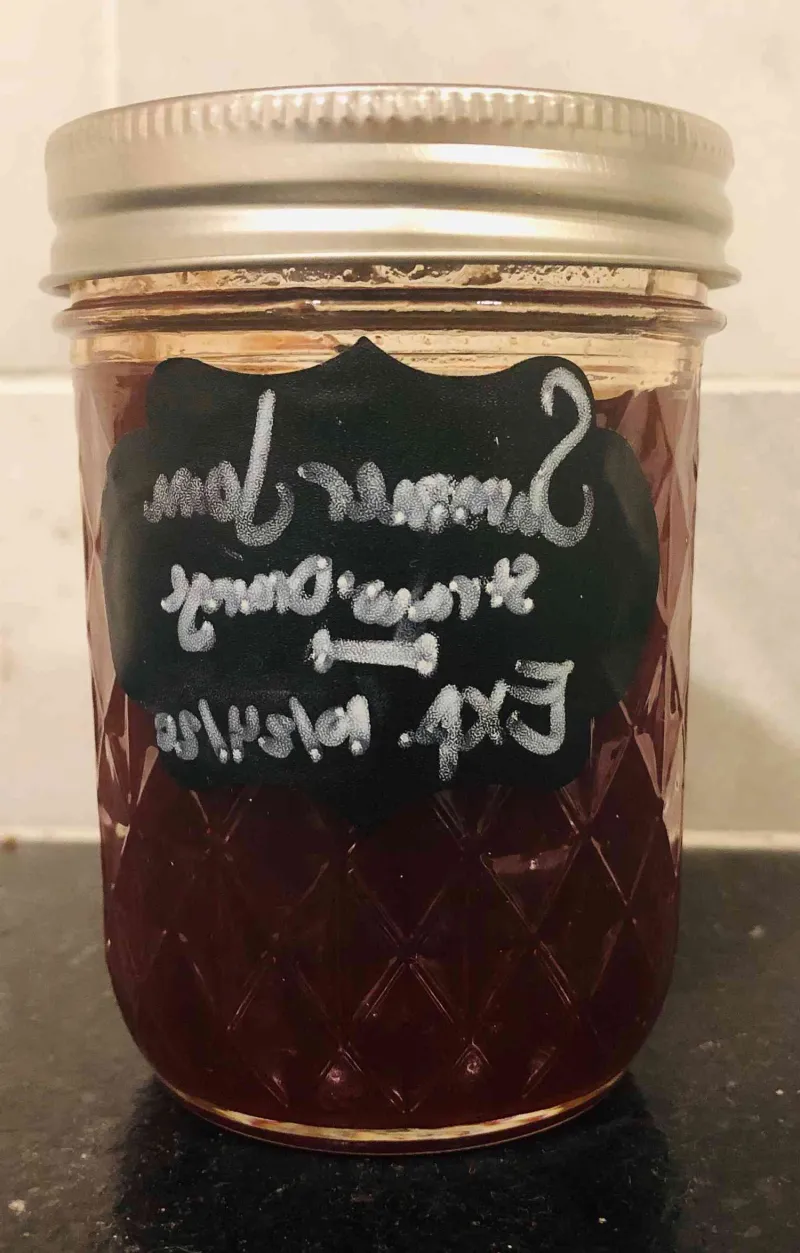 Summer Jam
Straw. Orange
Exp. 10/24/20